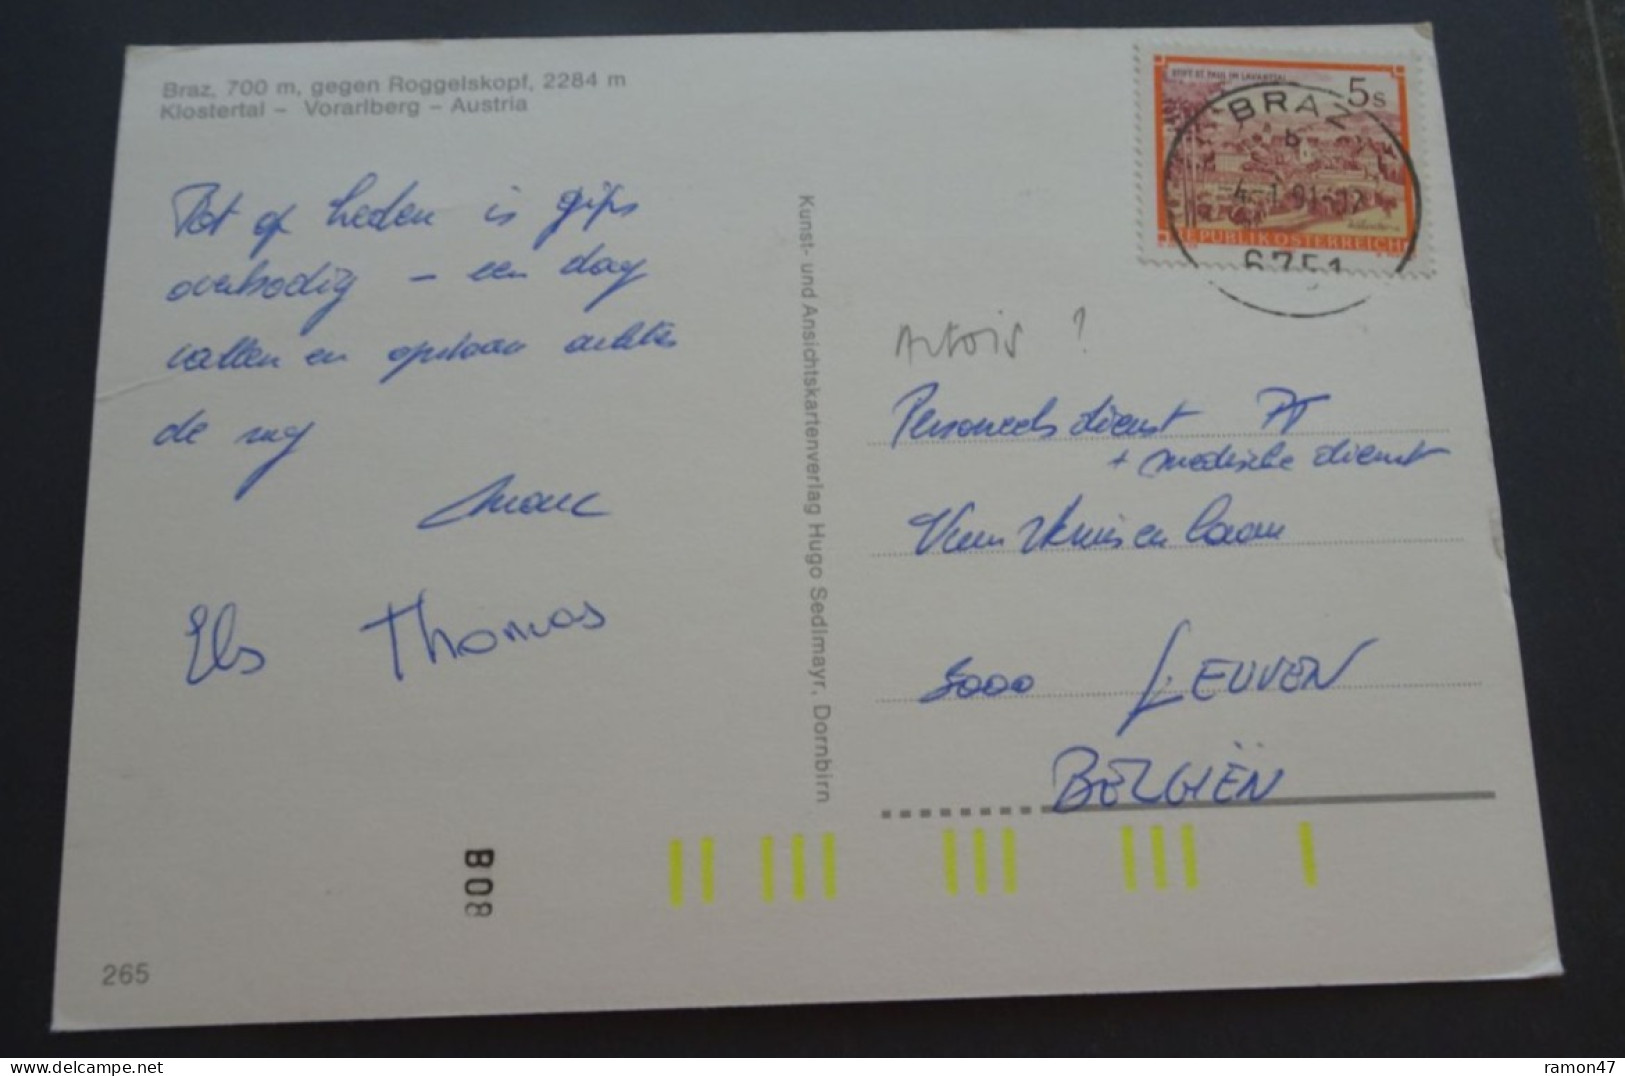 Braz, 700 m, gegen Roggelskopf, 2284 m
Klostertal – Vorarlberg – Austria
Tot op heden is gips
overbodig – een dag
vallen en opstaan achter
de rug
Marc
Els Thomas
265
B08
Kunst- und Ansichtskartenverlag Hugo Sedlmayr, Dornbirn
STIFT ST. PAUL IM LAVANTTAL
5s
REPUBLIK ÖSTERREICH
BRAZ
b
4-1.91-12
6751
Artois ?
Personeelsdienst PT
+ medische dienst
Vuurkruisenlaan
3000 LEUVEN
BELGIËN
ramon47